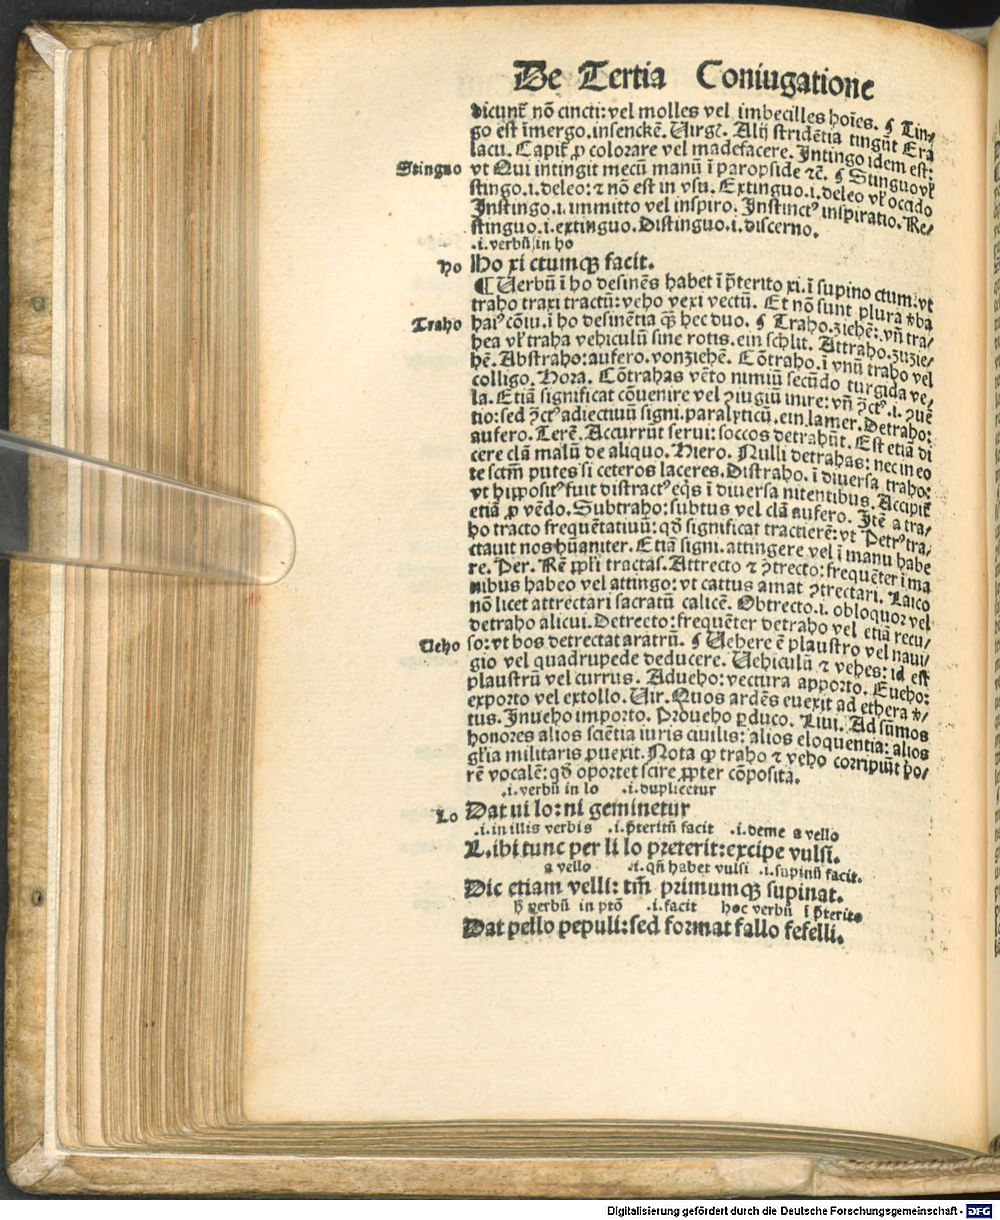 De Tertia Coniugatione
dicunt̃ nõ cincti: vel molles vel imbecilles hoīes. ¶ Tin⸗
go est īmergo. insenckē. Uirgꝰ. Alij stridētia tingūt Era
lacu. Capit̃ ꝓ colorare vel madefacere. Intingo idem est:
Stinguo vt Qui intingit mecū manū ī paropside ⁊c̃. ¶ Stinguo vł
stingo .i. deleo: ⁊ nõ est in vsu. Extinguo .i. deleo vł occido
Instingo .i. immitto vel inspiro. Instinctꝰ inspiratio. Re⸗
stinguo .i. extinguo. Distinguo .i. discerno.
.i. verbū in ho
ho Ho xi ctumqꝫ facit.
¶ Uerbū ī ho desinēs habet ī p̃terito xi. ī supino ctum: vt
traho traxi tractū: veho vexi vectū. Et nõ sunt plura v̾ba
Traho haiꝰ cõiu. ī ho desinētia q̃ꝫ hec duo. ¶ Traho. ziehē: vñ tra⸗
hea vł traha vehiculū sine rotis. ein schlit. Attraho. zuzie⸗
hē. Abstraho: aufero. vonziehē. Cõtraho. ī vnū traho vel
colligo. Hora. Cõtrahas vēto nimiū secūdo turgida ve⸗
la. Etiã significat cõuenire vel ꝯiugiū inire: vñ ꝯ̃ctꝰ .i. ꝯuē
tio: sed ꝯ̃ctꝰ adiectiuū signi. paralyticū. ein lamer. Detraho:
aufero. Terē. Accurrūt serui: soccos detrahūt. Est etiã di
cere clã malū de aliquo. Hiero. Nulli detrahas: nec in eo
te sctm̃ putes si ceteros laceres. Distraho. ī diuersa traho:
vt hippositꝰ fuit distractꝰ eq̃s ī diuersa nitentibus. Accipit̃
etiã ꝓ vēdo. Subtraho: subtus vel clã aufero. Itē a tra⸗
ho tracto frequētatiuū: qð significat tractierē: vt Petrꝰ tra⸗
ctauit nos hūaniter. Etiã signi. attingere vel ī manu habe
re. Per. Rē ppłi tractas. Attrecto ⁊ ꝯtrecto: frequēter ī ma
nibus habeo vel attingo: vt cattus amat ꝯtrectari. Laico
nõ licet attrectari sacratū calicē. Obtrecto .i. obloquor vel
detraho alicui. Detrecto: frequēter detraho vel etiã recu⸗
Ueho so: vt bos detrectat aratrū. ¶ Uehere ē plaustro vel naui⸗
gio vel quadrupede deducere. Uehiculū ⁊ vehes: id est
plaustrū vel currus. Adueho: vectura apporto. Eueho:
exporto vel extollo. Uir. Quos ardēs euexit ad ethera v̾⸗
tus. Inueho importo. Proueho ꝑduco. Liui. Ad sūmos
honores alios sciētia iuris ciuilis: alios eloquentia: alios
glīa militaris ꝓuexit. Nota ꝙ traho ⁊ veho corripiūt po⸗
rē vocalē: qð oportet scire ꝓpter cõposita.
.i. verbū in lo .i. duplicetur
Lo Dat ui lo: ni geminetur
.i. in illis verbis .i. p̃teritū facit .i. deme a vello
L. ibi tunc per li lo preterit: excipe vulsi.
a vello .i. qñ habet vulsi .i. supinū facit.
Dic etiam velli: tm̃ primumqꝫ supinat.
ꝧ verbū in ptõ .i. facit hoc verbū ī p̃terito
Dat pello pepuli: sed format fallo fefelli.
Digitalisierung gefördert durch die Deutsche Forschungsgemeinschaft - DFG